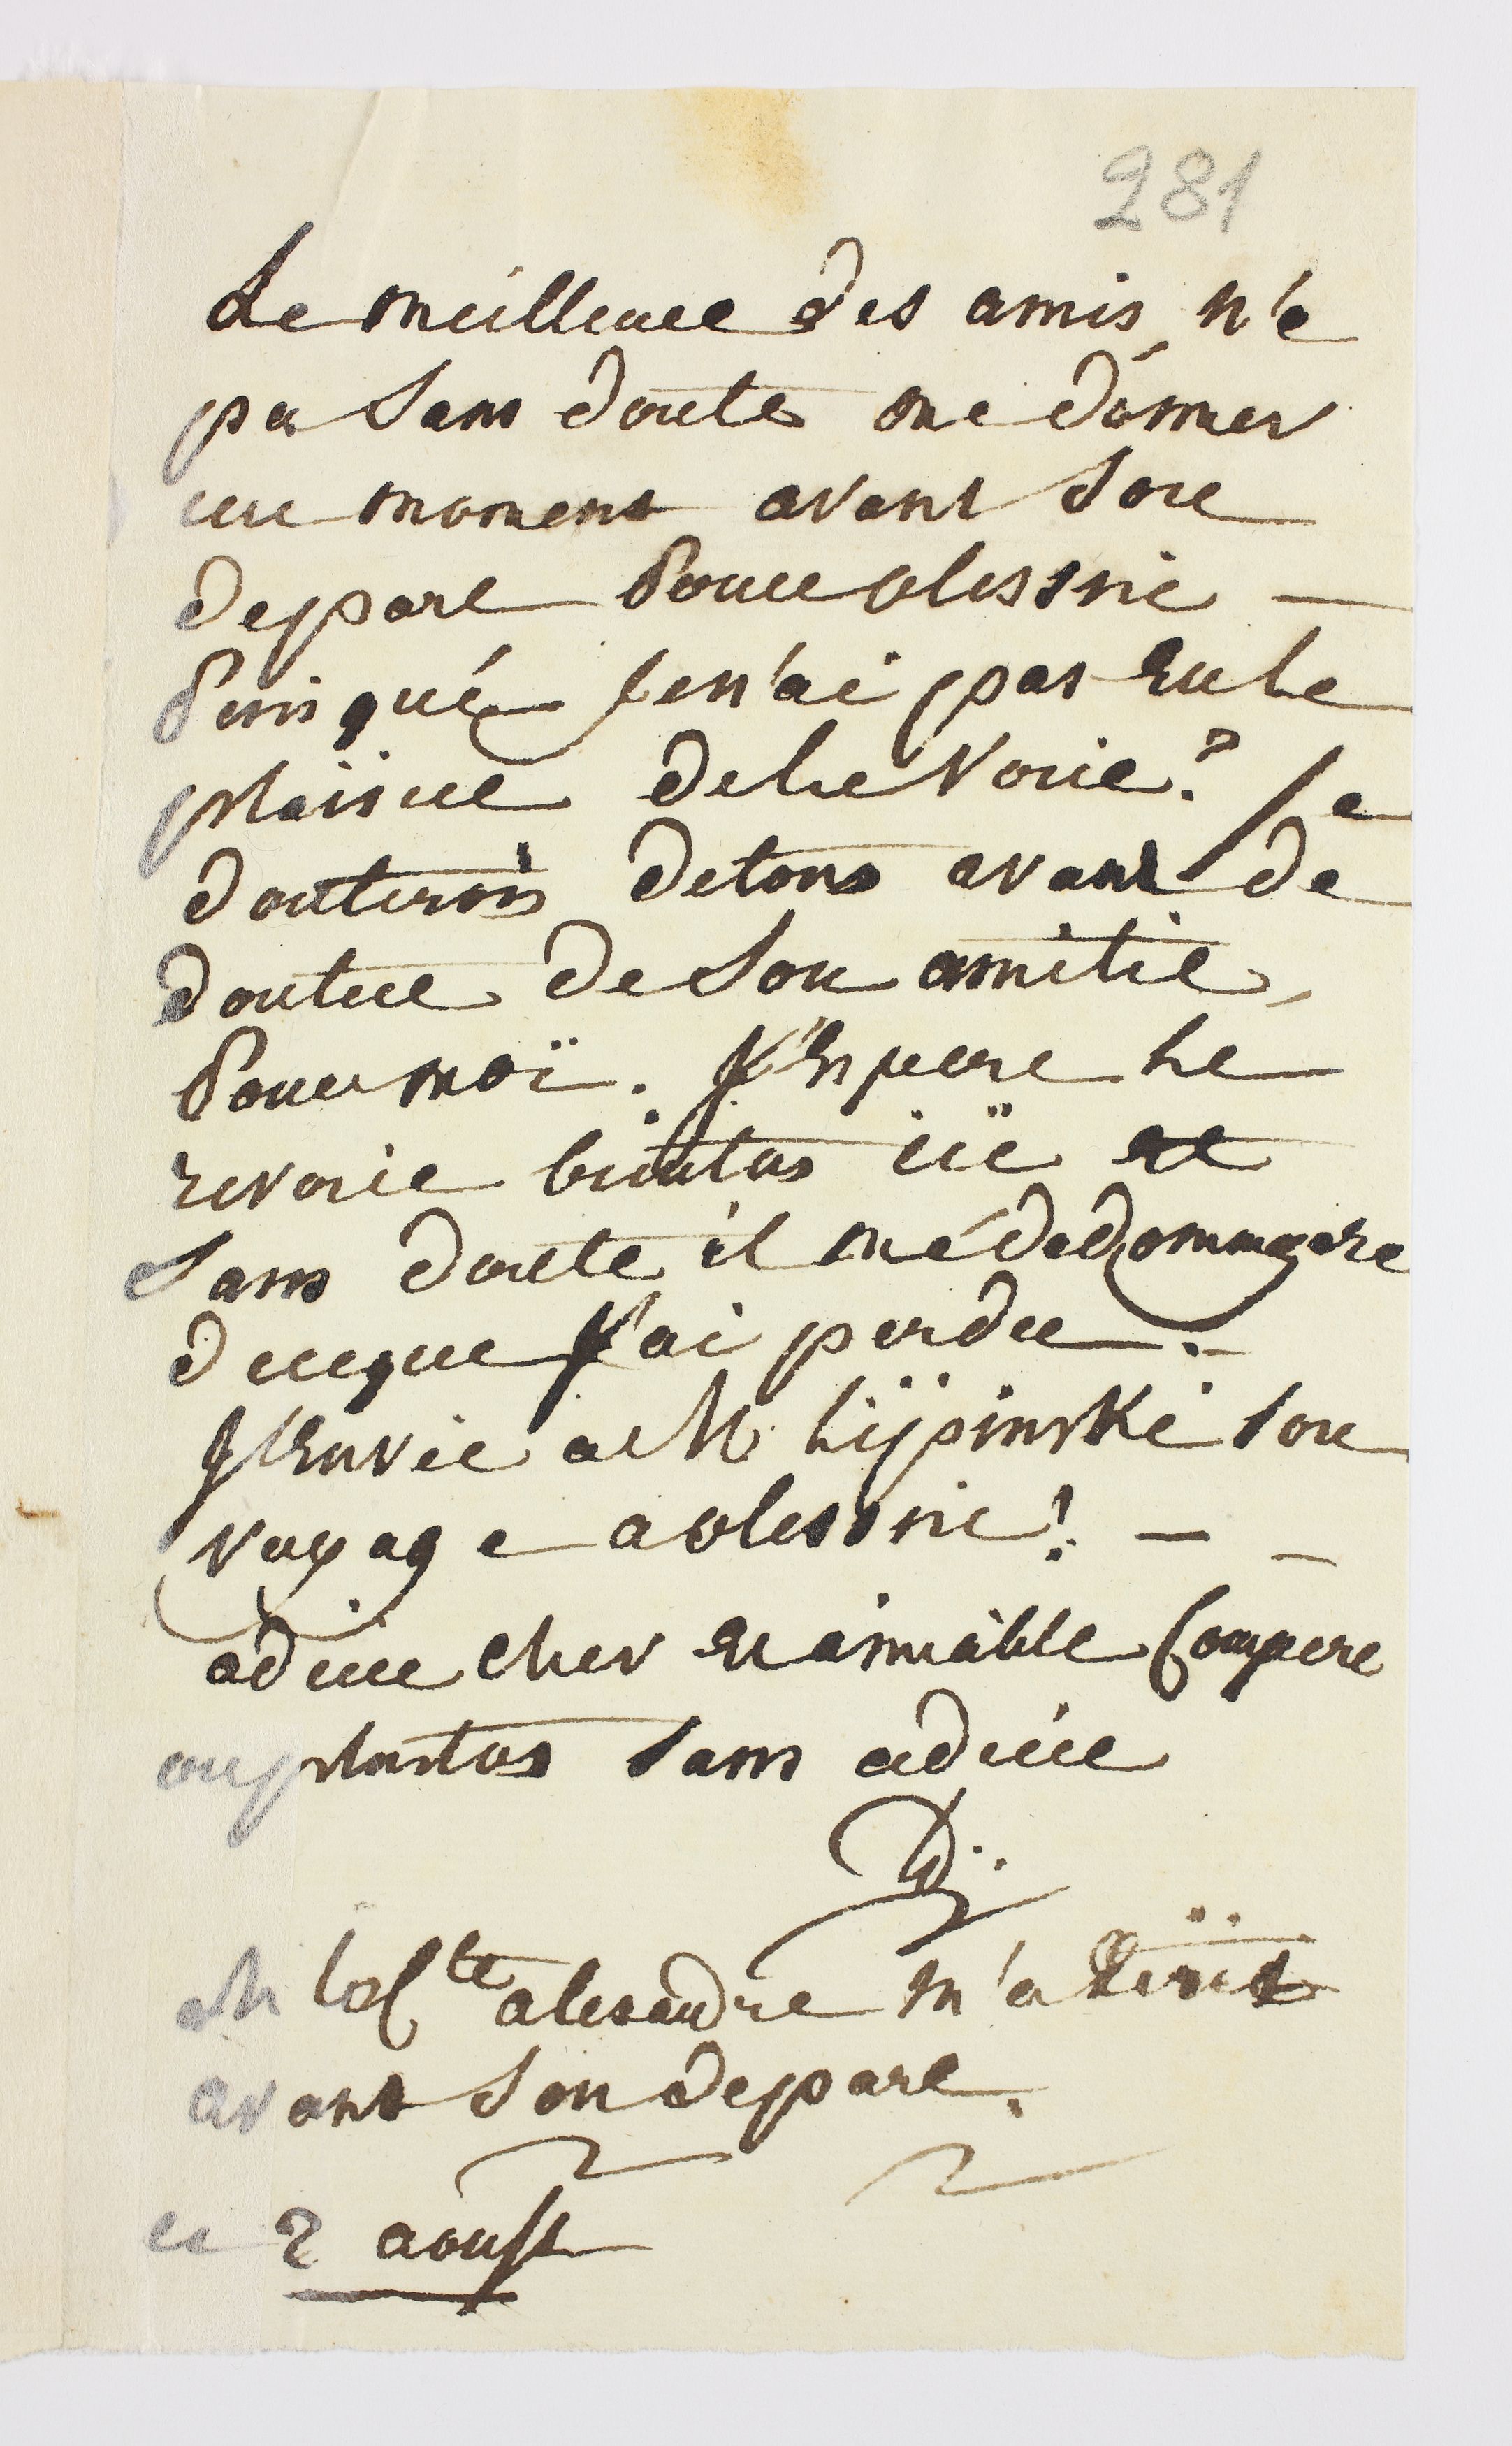 281
Le meilleur des amis, n'a
pu sans doute me donner
un moment avant son
depart pour olesnie —
puis que je n'ai pas eu le
plaisir de le voir? je
douterois de tous avant de
douter de son amitie,
pour moï. j'espere le
revoir bientos icï et
sans doute il me dedomagera
du que j'ai perdu. —
j'envie a M. Lipinski son
voyage a olesnie! — —
adieu cher et aimable Compere
ou plustos sans adieu
M le Cte alexandre m'a
avant son depart.
ce 2 aoust